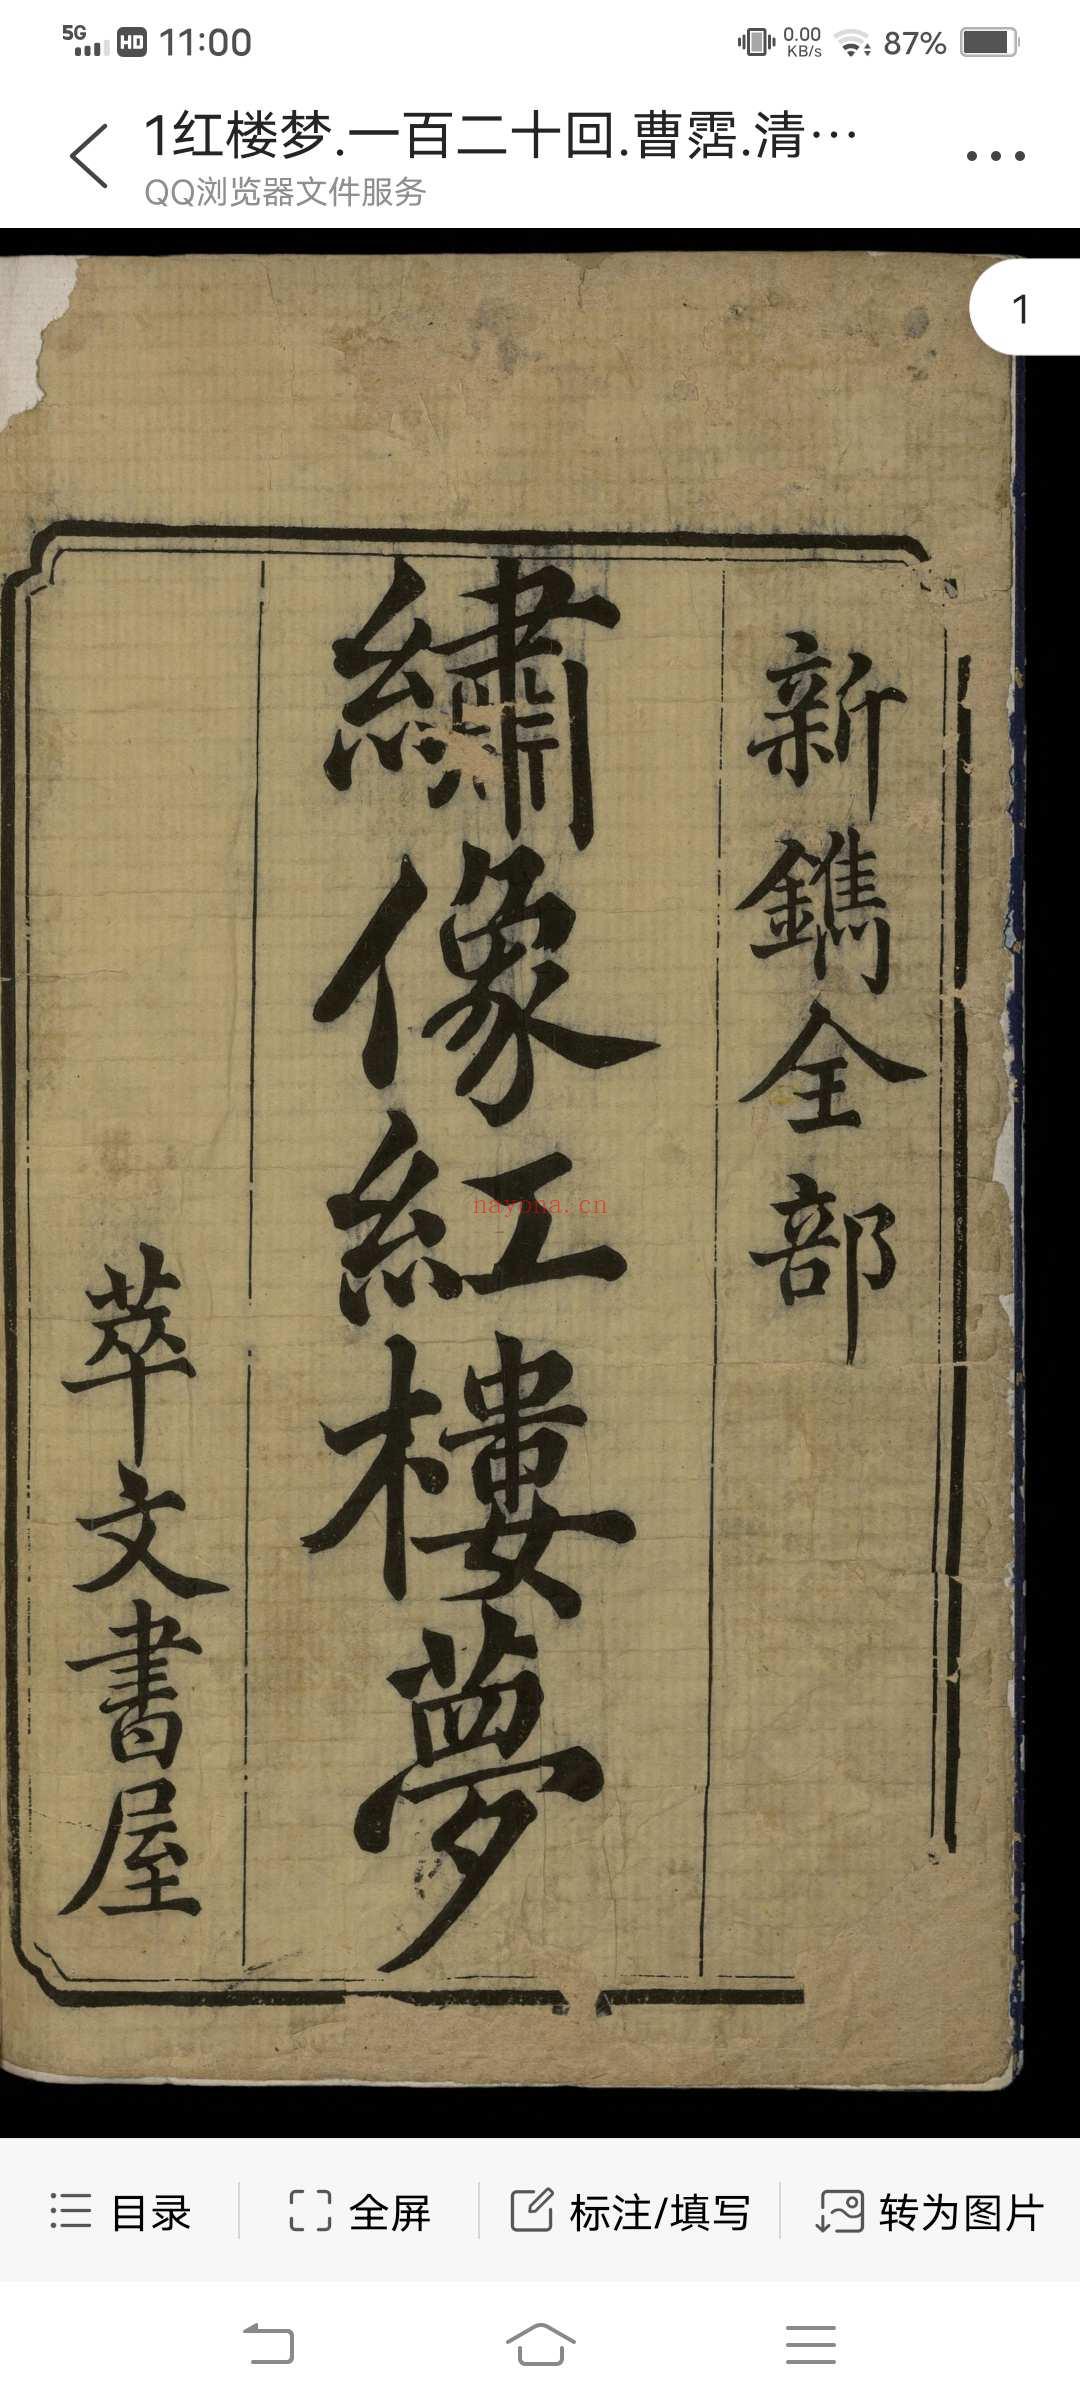 5G HD 11:00 0.00 KB/s 87%
1红楼梦.一百二十回.曹霑.清…
QQ浏览器文件服务
1
新鐫全部
繡像紅樓夢
萃文書屋
nayona.cn
目录 全屏 标注/填写 转为图片